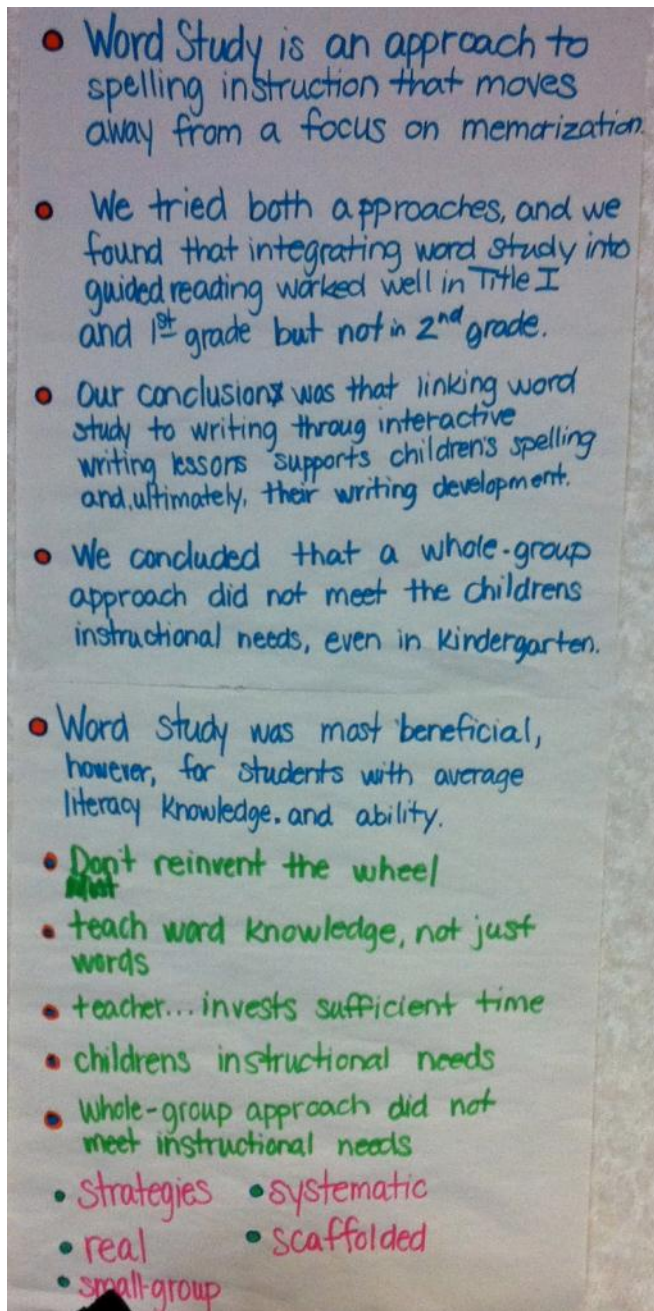 • Word Study is an approach to
spelling instruction that moves
away from a focus on memorization.
• We tried both approaches, and we
found that integrating word study into
guided reading worked well in Title I
and 1st grade but not in 2nd grade.
• Our conclusion was that linking word
study to writing throug interactive
writing lessons supports children's spelling
and, ultimately, their writing development.
• We concluded that a whole-group
approach did not meet the childrens
instructional needs, even in Kindergarten.
• Word Study was most beneficial,
however, for students with average
literacy knowledge. and ability.
• Don't reinvent the wheel
• teach word knowledge, not just
words
• teacher... invests sufficient time
• childrens instructional needs
• Whole-group approach did not
meet instructional needs
• strategies • systematic
• real • scaffolded
• small-group